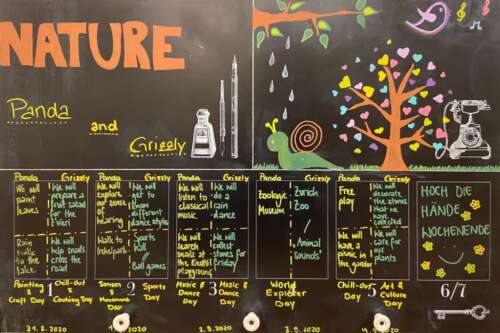 NATURE
Panda
and
Grizzly
Panda Grizzly
We will
paint
leaves
We will
make a
fruit salad
for the
Z'vieri
Rain
walk to
the lake
We will
help snails
cross the
road
Painting &
Craft Day
1
Chill-Out
&
Cooking Day
31.8.2020
Panda Grizzly
We will
explore
our sense
of
hearing
We will
get to
know
different
dance styles
Walk to
Sports
Hall
/
Ball games
Senses
&
Movement
Day
2
Sports
Day
.2020
Panda Grizzly
We will
listen to
classical
music
We will
do a
rain
dance
We will
search
snails at
the
playground
We will
collect
stones for
Friday
Music &
Dance
Day
3
Music &
Dance
Day
2.9.2020
Panda Grizzly
Zoologic
Museum
Zurich
Zoo
/
Animal
Sounds
World
Explorer
Day
3.9.2020
Panda Grizzly
Free
play
We will
decorate
the stones
that we
have
collected
We will
have a
picnic in
the
garden
We will
care
for
plants
Chill-Out
Day
5
Art &
Culture
Day
HOCH DIE
HÄNDE
WOCHENENDE
6/7